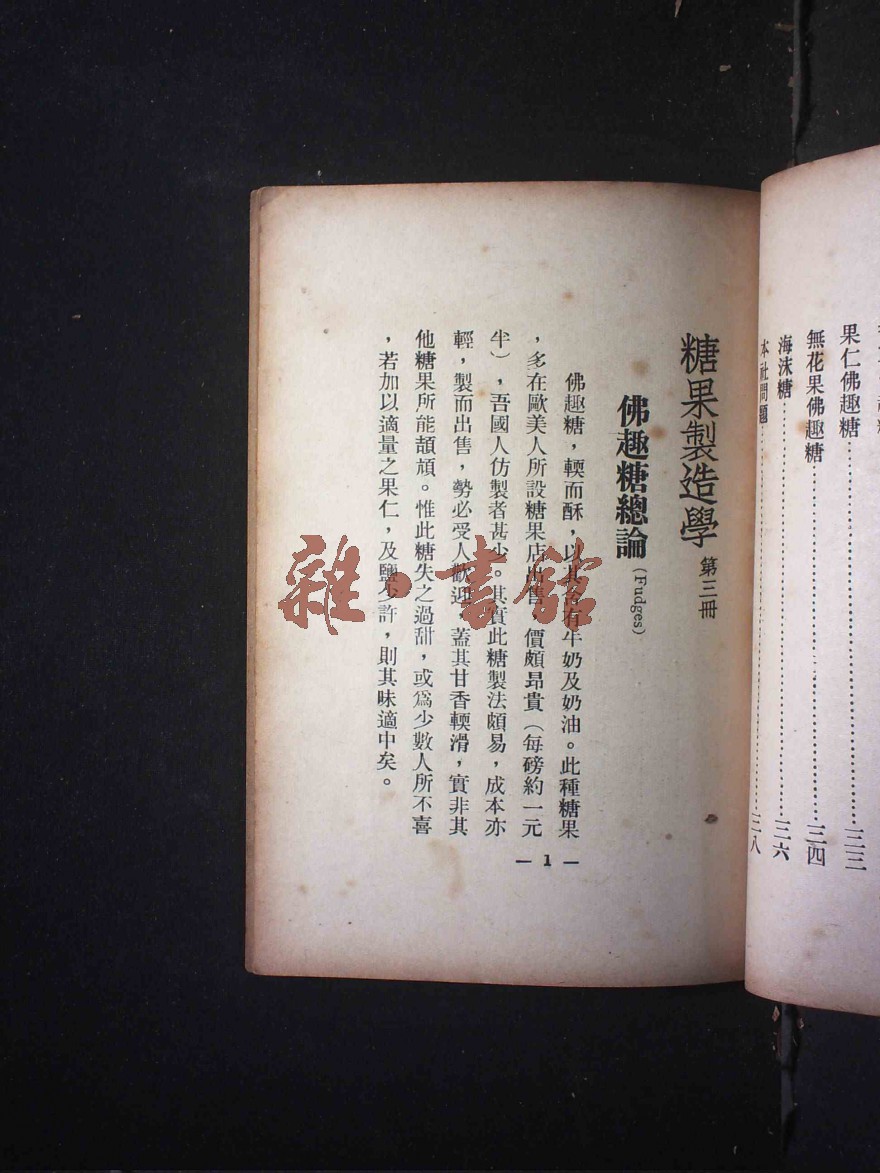 果仁佛趣糖……………………三三
無花果佛趣糖……………………三四
海沫糖……………………三六
本社問題……………………三八
糖果製造學 第三冊
佛趣糖總論 (Fudges)
佛趣糖，輭而酥，以其含有牛奶及奶油。此種糖果
，多在歐美人所設糖果店出售，價頗昂貴（每磅約一元
半），吾國人仿製者甚少。其實此糖製法頗易，成本亦
輕，製而出售，勢必受人歡迎，蓋其甘香輭滑，實非其
他糖果所能頡頏。惟此糖失之過甜，或爲少數人所不喜
，若加以適量之果仁，及鹽少許，則其味適中矣。
— 1 —
雜·書館